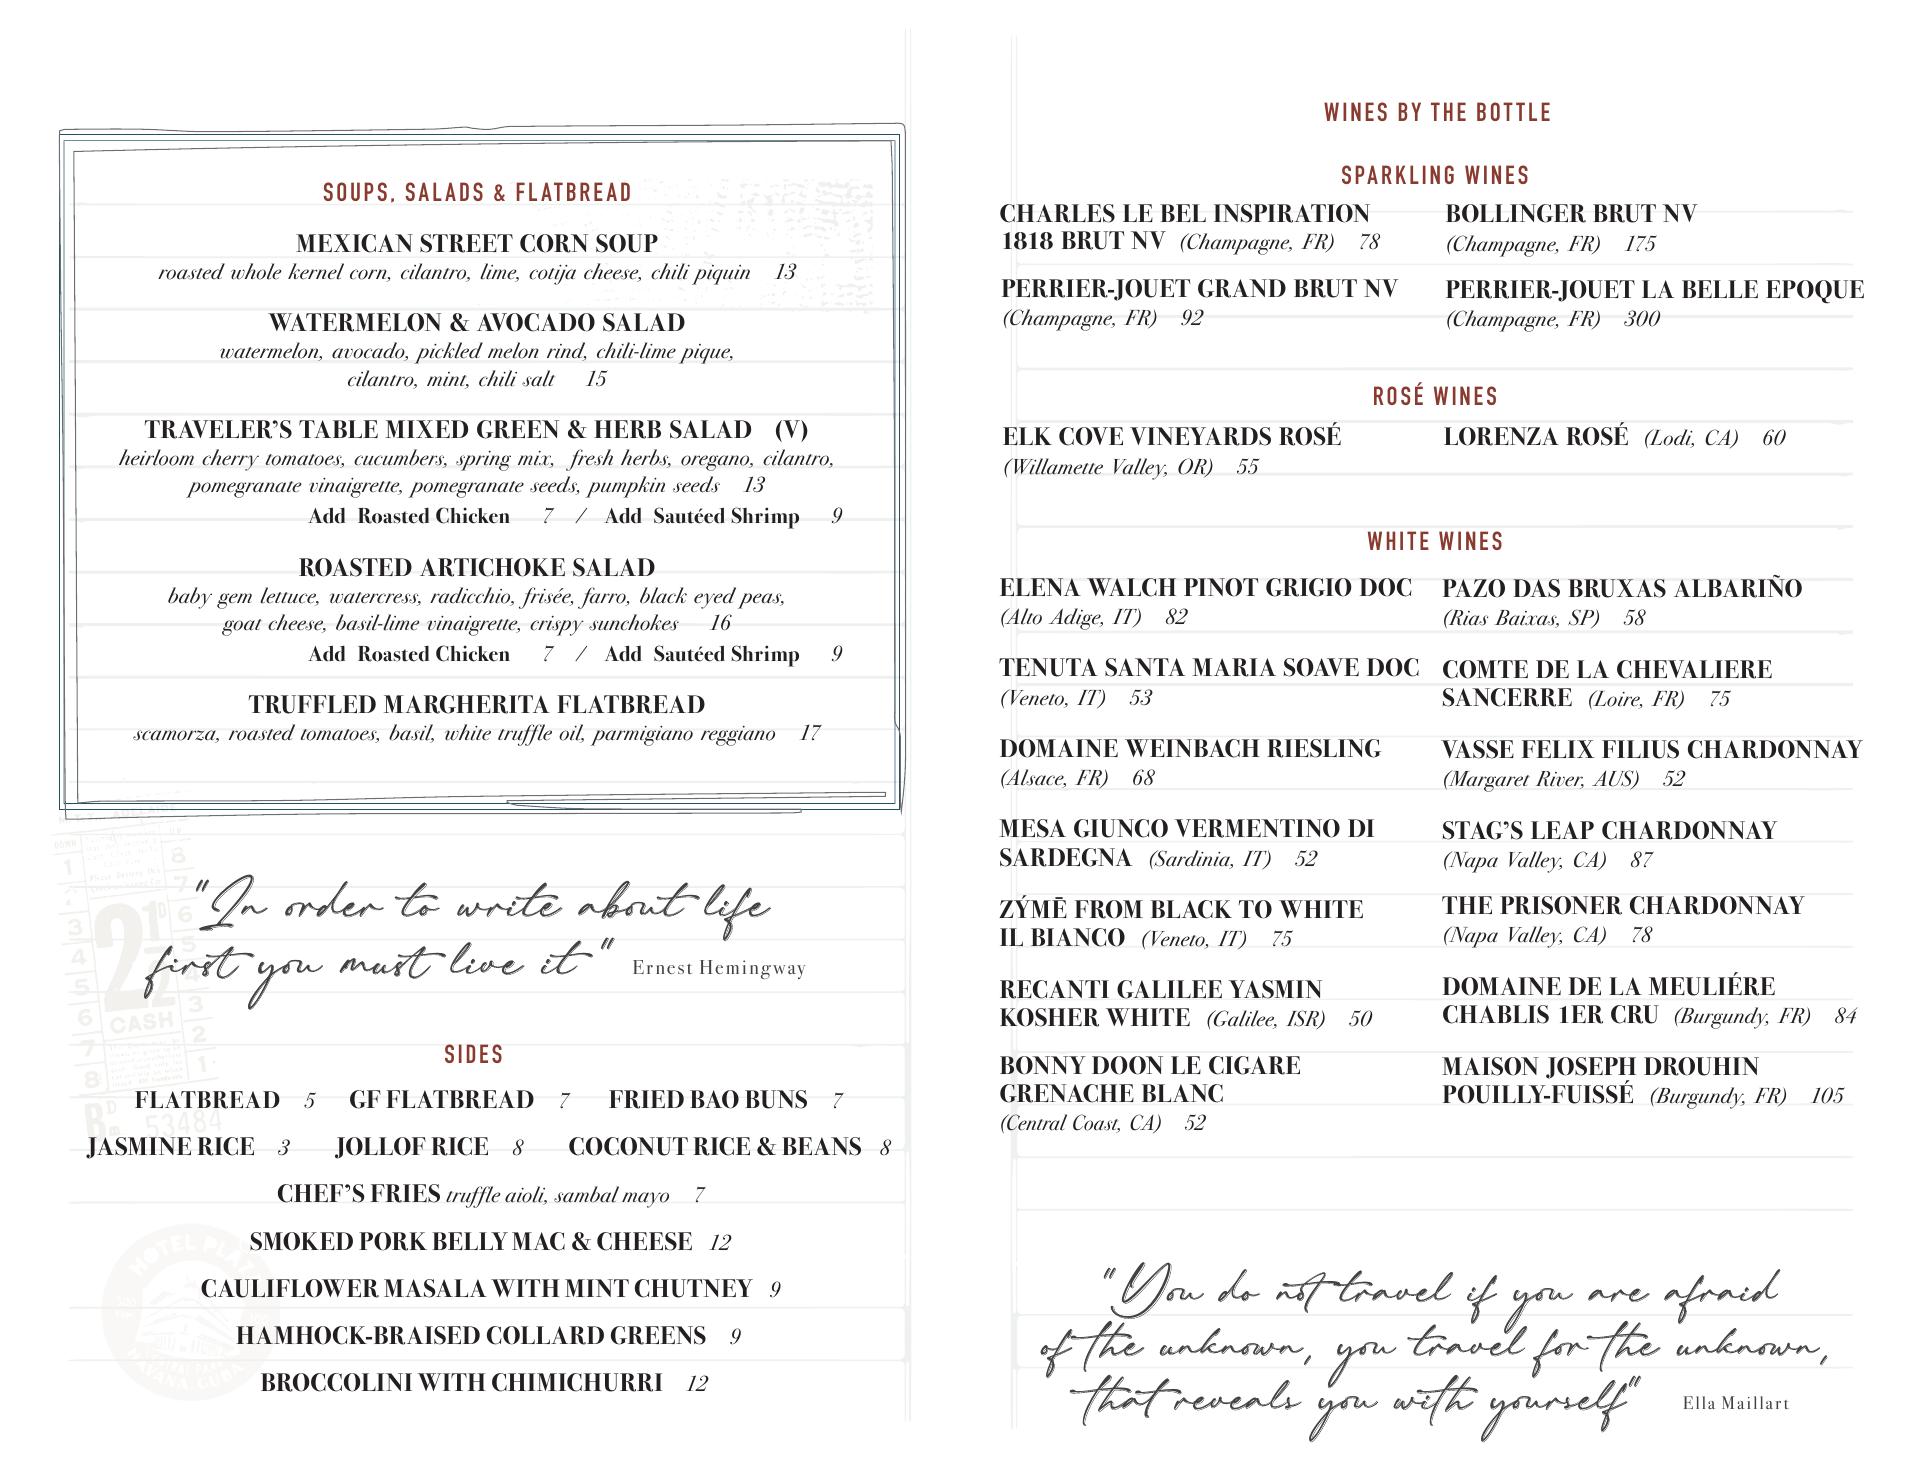 SOUPS, SALADS & FLATBREAD
MEXICAN STREET CORN SOUP
roasted whole kernel corn, cilantro, lime, cotija cheese, chili piquin 13
WATERMELON & AVOCADO SALAD
watermelon, avocado, pickled melon rind, chili-lime pique,
cilantro, mint, chili salt 15
TRAVELER'S TABLE MIXED GREEN & HERB SALAD (V)
heirloom cherry tomatoes, cucumbers, spring mix, fresh herbs, oregano, cilantro,
pomegranate vinaigrette, pomegranate seeds, pumpkin seeds 13
Add Roasted Chicken 7 / Add Sautéed Shrimp 9
ROASTED ARTICHOKE SALAD
baby gem lettuce, watercress, radicchio, frisée, farro, black eyed peas,
goat cheese, basil-lime vinaigrette, crispy sunchokes 16
Add Roasted Chicken 7 / Add Sautéed Shrimp 9
TRUFFLED MARGHERITA FLATBREAD
scamorza, roasted tomatoes, basil, white truffle oil, parmigiano reggiano 17
"In order to write about life
first you must live it" Ernest Hemingway
SIDES
FLATBREAD 5 GF FLATBREAD 7 FRIED BAO BUNS 7
JASMINE RICE 3 JOLLOF RICE 8 COCONUT RICE & BEANS 8
CHEF'S FRIES truffle aioli, sambal mayo 7
SMOKED PORK BELLY MAC & CHEESE 12
CAULIFLOWER MASALA WITH MINT CHUTNEY 9
HAMHOCK-BRAISED COLLARD GREENS 9
BROCCOLINI WITH CHIMICHURRI 12
WINES BY THE BOTTLE
SPARKLING WINES
CHARLES LE BEL INSPIRATION
1818 BRUT NV (Champagne, FR) 78
PERRIER-JOUET GRAND BRUT NV
(Champagne, FR) 92
BOLLINGER BRUT NV
(Champagne, FR) 175
PERRIER-JOUET LA BELLE EPOQUE
(Champagne, FR) 300
ROSÉ WINES
ELK COVE VINEYARDS ROSÉ
(Willamette Valley, OR) 55
LORENZA ROSÉ (Lodi, CA) 60
WHITE WINES
ELENA WALCH PINOT GRIGIO DOC
(Alto Adige, IT) 82
TENUTA SANTA MARIA SOAVE DOC
(Veneto, IT) 53
DOMAINE WEINBACH RIESLING
(Alsace, FR) 68
MESA GIUNCO VERMENTINO DI
SARDEGNA (Sardinia, IT) 52
ZÝMĒ FROM BLACK TO WHITE
IL BIANCO (Veneto, IT) 75
RECANTI GALILEE YASMIN
KOSHER WHITE (Galilee, ISR) 50
BONNY DOON LE CIGARE
GRENACHE BLANC
(Central Coast, CA) 52
PAZO DAS BRUXAS ALBARIÑO
(Rias Baixas, SP) 58
COMTE DE LA CHEVALIERE
SANCERRE (Loire, FR) 75
VASSE FELIX FILIUS CHARDONNAY
(Margaret River, AUS) 52
STAG'S LEAP CHARDONNAY
(Napa Valley, CA) 87
THE PRISONER CHARDONNAY
(Napa Valley, CA) 78
DOMAINE DE LA MEULIÉRE
CHABLIS 1ER CRU (Burgundy, FR) 84
MAISON JOSEPH DROUHIN
POUILLY-FUISSÉ (Burgundy, FR) 105
"You do not travel if you are afraid
of the unknown, you travel for the unknown,
that reveals you with yourself" Ella Maillart